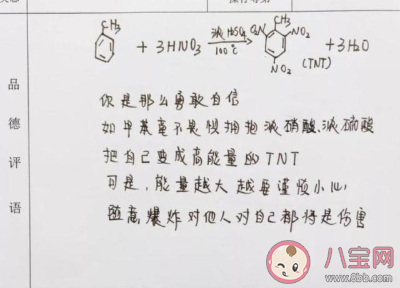 CH₃ + 3HNO₃ 浓H₂SO₄ 100℃ O₂N CH₃ NO₂ NO₂ (TNT) + 3H₂O
品德评语
你是那么勇敢自信
如甲苯毫不畏惧拥抱浓硝酸、浓硫酸
把自己变成高能量的TNT
可是,能量越大越要谨慎小心
爆炸对他人对自己都将是伤害
八宝网
www.8bb.com